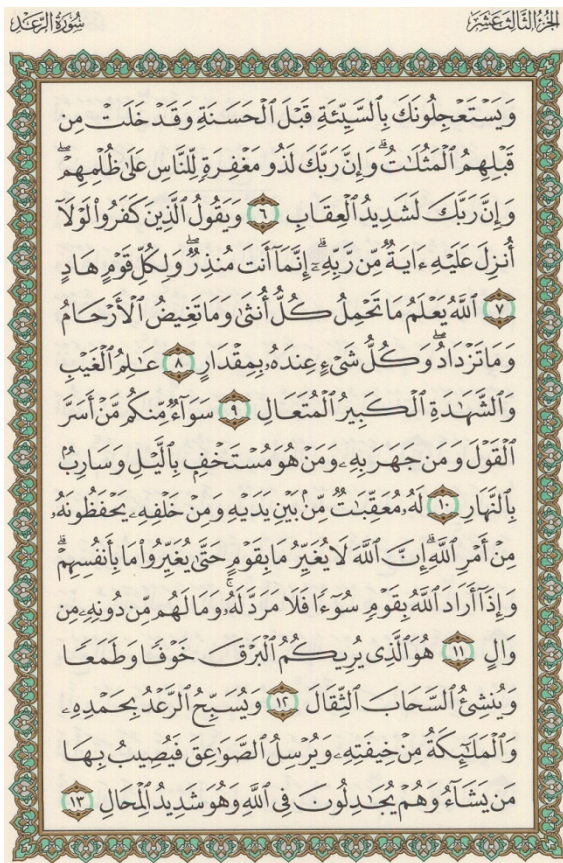 سُورَةُ الرَّعْدِ
الجُزْءُ الثَّالِثَ عَشَرَ
وَيَسْتَعْجِلُونَكَ بِٱلسَّيِّئَةِ قَبْلَ ٱلْحَسَنَةِ وَقَدْ خَلَتْ مِن
قَبْلِهِمُ ٱلْمَثُلَٰتُۗ وَإِنَّ رَبَّكَ لَذُو مَغْفِرَةٍ لِّلنَّاسِ عَلَىٰ ظُلْمِهِمْۖ
وَإِنَّ رَبَّكَ لَشَدِيدُ ٱلْعِقَابِ ٦ وَيَقُولُ ٱلَّذِينَ كَفَرُوا۟ لَوْلَآ
أُنزِلَ عَلَيْهِ ءَايَةٌ مِّن رَّبِّهِۦٓۗ إِنَّمَآ أَنتَ مُنذِرٌۖ وَلِكُلِّ قَوْمٍ هَادٍ
٧ ٱللَّهُ يَعْلَمُ مَا تَحْمِلُ كُلُّ أُنثَىٰ وَمَا تَغِيضُ ٱلْأَرْحَامُ
وَمَا تَزْدَادُۖ وَكُلُّ شَىْءٍ عِندَهُۥ بِمِقْدَارٍ ٨ عَٰلِمُ ٱلْغَيْبِ
وَٱلشَّهَٰدَةِ ٱلْكَبِيرُ ٱلْمُتَعَالِ ٩ سَوَآءٌ مِّنكُم مَّنْ أَسَرَّ
ٱلْقَوْلَ وَمَن جَهَرَ بِهِۦ وَمَنْ هُوَ مُسْتَخْفٍۭ بِٱلَّيْلِ وَسَارِبٌۢ
بِٱلنَّهَارِ ١٠ لَهُۥ مُعَقِّبَٰتٌ مِّنۢ بَيْنِ يَدَيْهِ وَمِنْ خَلْفِهِۦ يَحْفَظُونَهُۥ
مِنْ أَمْرِ ٱللَّهِۗ إِنَّ ٱللَّهَ لَا يُغَيِّرُ مَا بِقَوْمٍ حَتَّىٰ يُغَيِّرُوا۟ مَا بِأَنفُسِهِمْۗ
وَإِذَآ أَرَادَ ٱللَّهُ بِقَوْمٍ سُوٓءًا فَلَا مَرَدَّ لَهُۥۚ وَمَا لَهُم مِّن دُونِهِۦ مِن
وَالٍ ١١ هُوَ ٱلَّذِى يُرِيكُمُ ٱلْبَرْقَ خَوْفًا وَطَمَعًا
وَيُنشِئُ ٱلسَّحَابَ ٱلثِّقَالَ ١٢ وَيُسَبِّحُ ٱلرَّعْدُ بِحَمْدِهِۦ
وَٱلْمَلَٰٓئِكَةُ مِنْ خِيفَتِهِۦ وَيُرْسِلُ ٱلصَّوَٰعِقَ فَيُصِيبُ بِهَا
مَن يَشَآءُ وَهُمْ يُجَٰدِلُونَ فِى ٱللَّهِ وَهُوَ شَدِيدُ ٱلْمِحَالِ ١٣